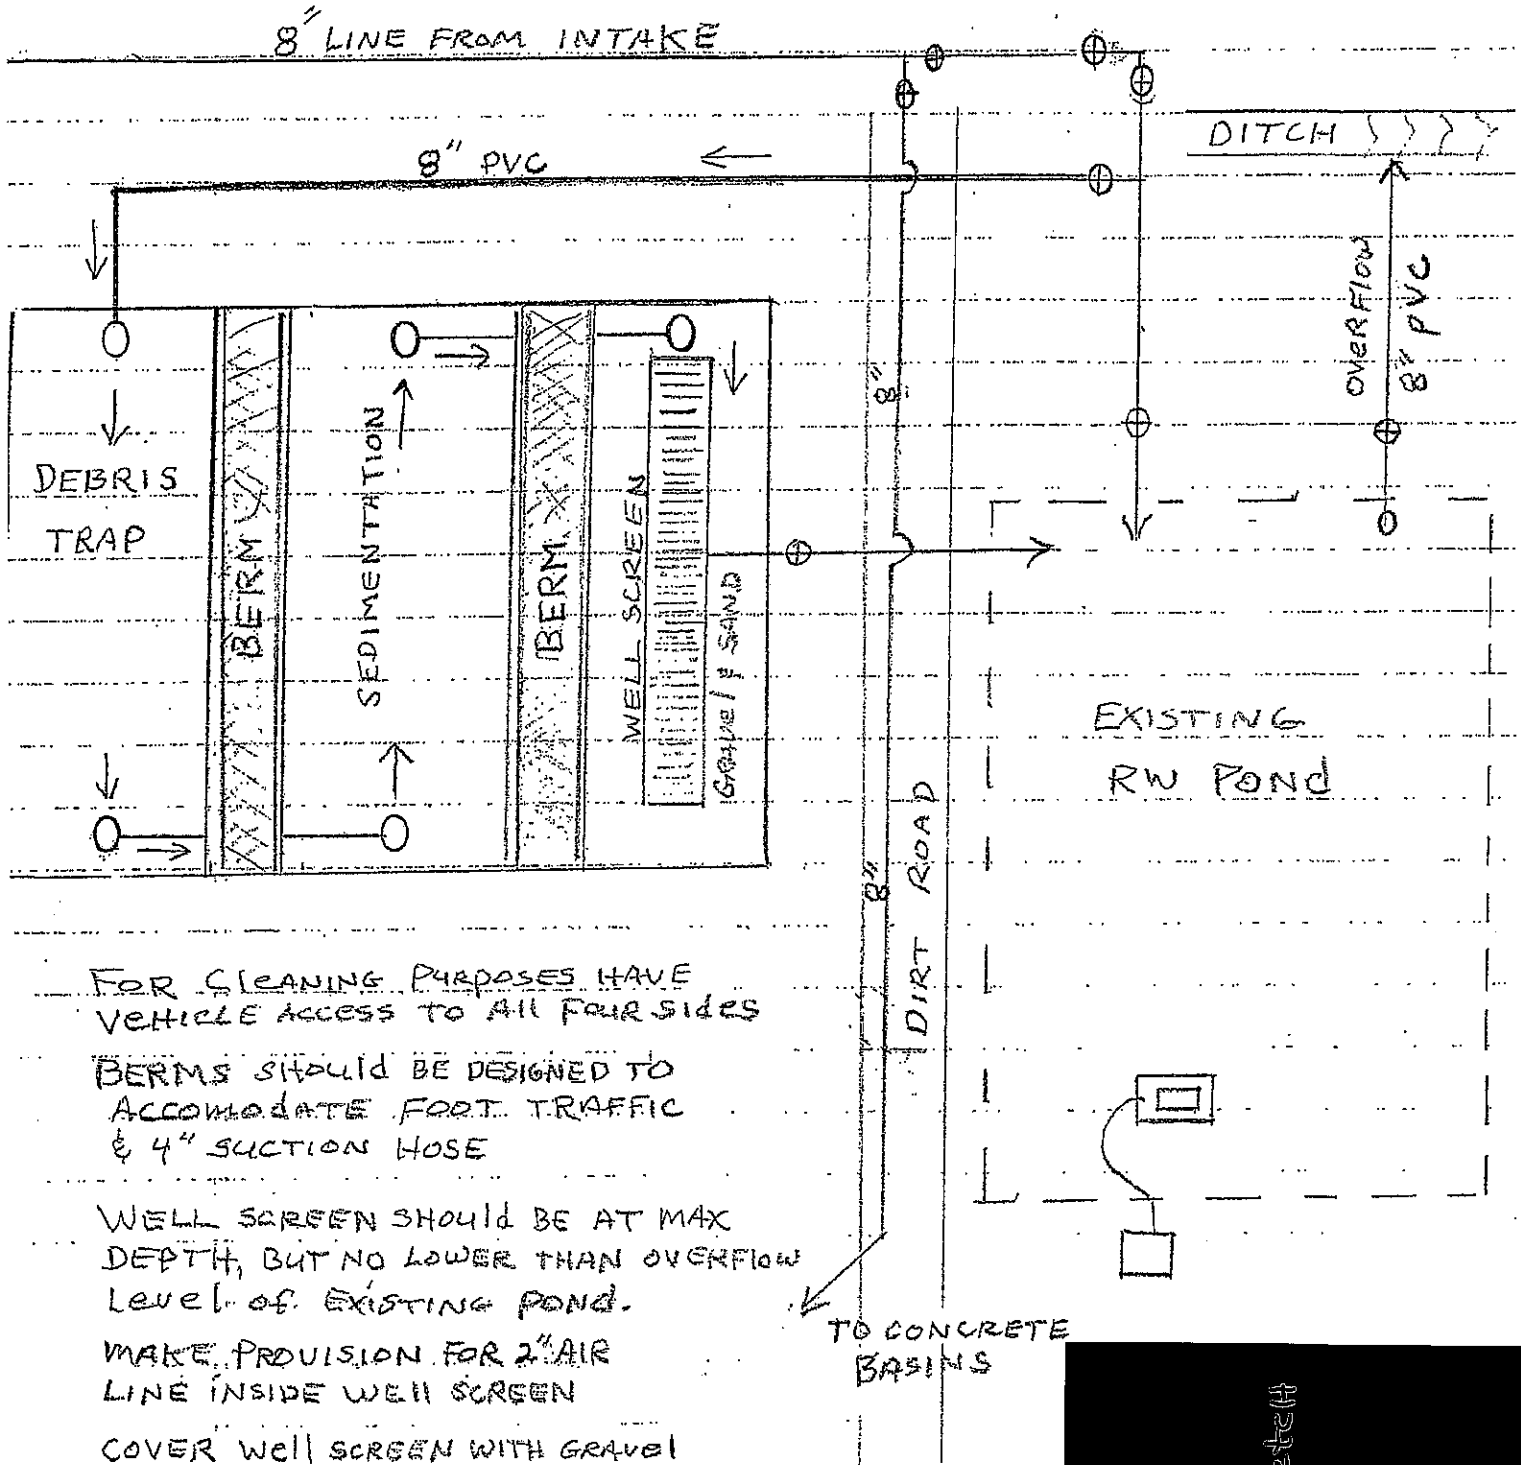 8" LINE FROM INTAKE
DITCH
8" PVC
OVERFLOW
8" PVC
8"
DEBRIS
TRAP
BERM
SEDIMENTATION
BERM
WELL SCREEN
GRAVEl & SAND
EXISTING
RW PONd
8"
DIRT ROAD
FOR ClEANING PURPOSES HAVE
VEHICLE ACCESS TO All FOUR SIdES
BERMS SHOUld BE DESIGNED TO
ACCOMOdATE FOOT TRAFFIC
& 4" SUCTION HOSE
WELL SCREEN SHOUld BE AT MAX
DEPTH, BUT NO LOWER THAN OVERFlOW
Level of EXISTING PONd.
MAKE PROVISION FOR 2" AIR
LINE INSIDE WEll SCREEN
COVER Well SCREEN WITH GRAVEl
TO CONCRETE
BASINS